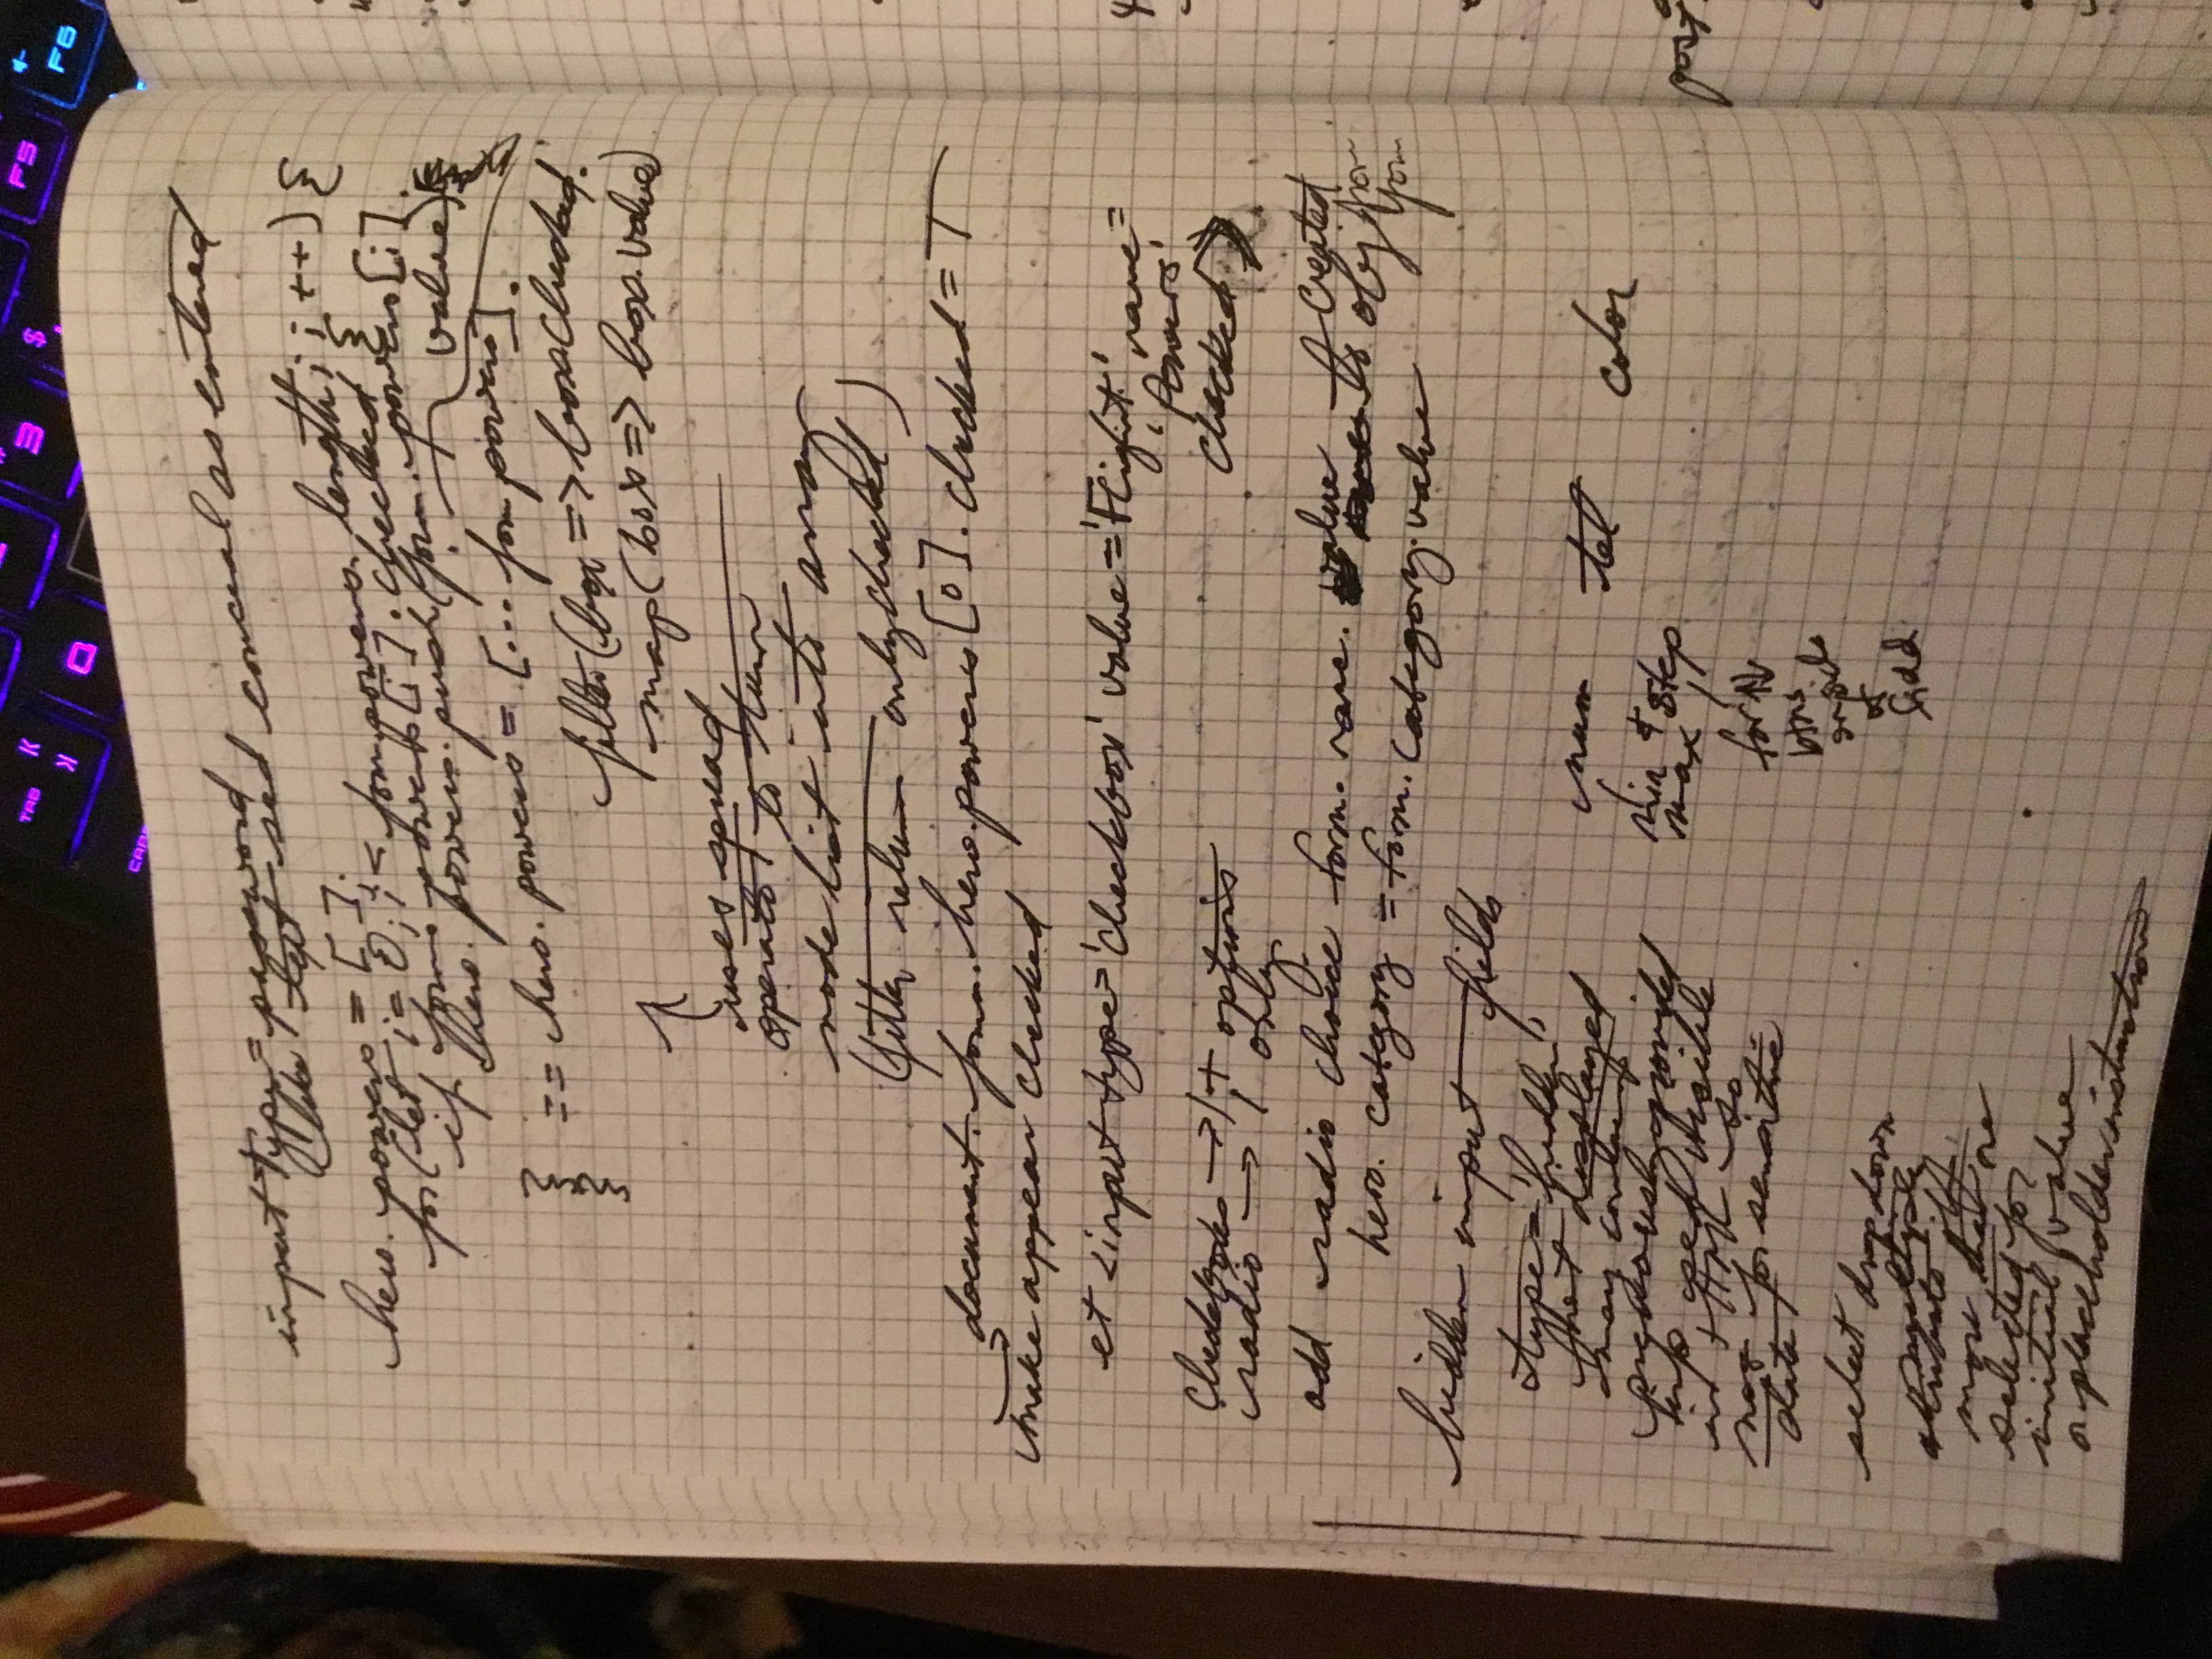 TAB
K
Q
3
$
F5
F6
input type= password
like text conceal as entered
hero. powers = [ ];
for (let i= 0; i < form.powers. length; i ++) {
if form. powers[i]. checked {
hero. powers. push (form. powers[i].
value)
== hero. powers = [... form powers].
filter (box => box.checked.
map (box => box.value)
uses spread
operator to turn
node list into array
(filter return only checked)
document. form. hero.powers [0]. checked = T
make appear checked
et <input type= 'checkbox' value = 'Flight' name=
'Powers'
checked >
Checkboxes → 1+ options
radio → 1 only
add radio choice form. name. value to created
obj from
form
hero. category = form. category. value
hidden input fields
type= 'hidden'
not displayed
may contain
previously provided
visible
in HTML so
not for sensitive
data
num tel color
min & step
max
for ↑↓
btns
inside
of
field
select drop down
multiple
attribute if
more that one
selected for
initial value
or placeholder instruction
post